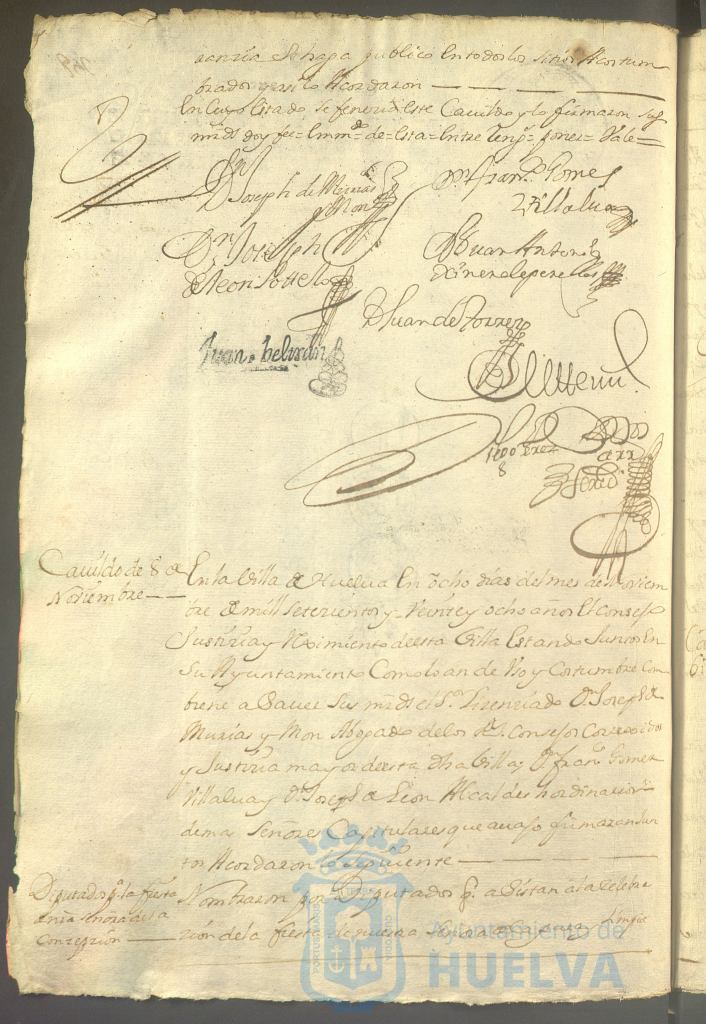 se haga publico En todos los sitios Acostum
brados y assi lo Acordaron
En Cuyo Estado se fenezio Este Cavildo y lo firmaron sus
mrds doy fee = Emmdo = de = Esta = Entre Rengs = = Vale =
Dn Joseph de Murias
y Mon
Dn Franco Gomes
Villalua
Dn Joseph
de Leon
Dn Juan Antonio
Dn Juan de Torres
Juan beltrán
Cavildo de 8 de
Noviembre
En la Villa de Huelva En ocho dias del mes de Noviem
bre de mill setezientos y Veinte y ocho años El Consejo
Justizia y Reximiento de esta Villa Estando Juntos En
Su Ayuntamiento Como lo an de Uso y Costumbre Com
biene a Saver Sus mrds el Sr Lizenziado Dn Joseph de
Murias y Mon Abogado de los Rs Consejos Correxidor
y Justizia mayor de esta dha Villa; Dn Franco Gomez
Villalua y Dn Joseph de Leon Alcaldes hordinarios
demas Señores Capitulares que avajo firmaran Jun
tos Acordaron lo siguiente
Diputados pa la fiesta
de nra señora de la
Conzepzion
Nombraron por Diputados pa asistan a la Zelebra
zion de la fiesta de nuestra Señora
Ayuntamiento de
HUELVA